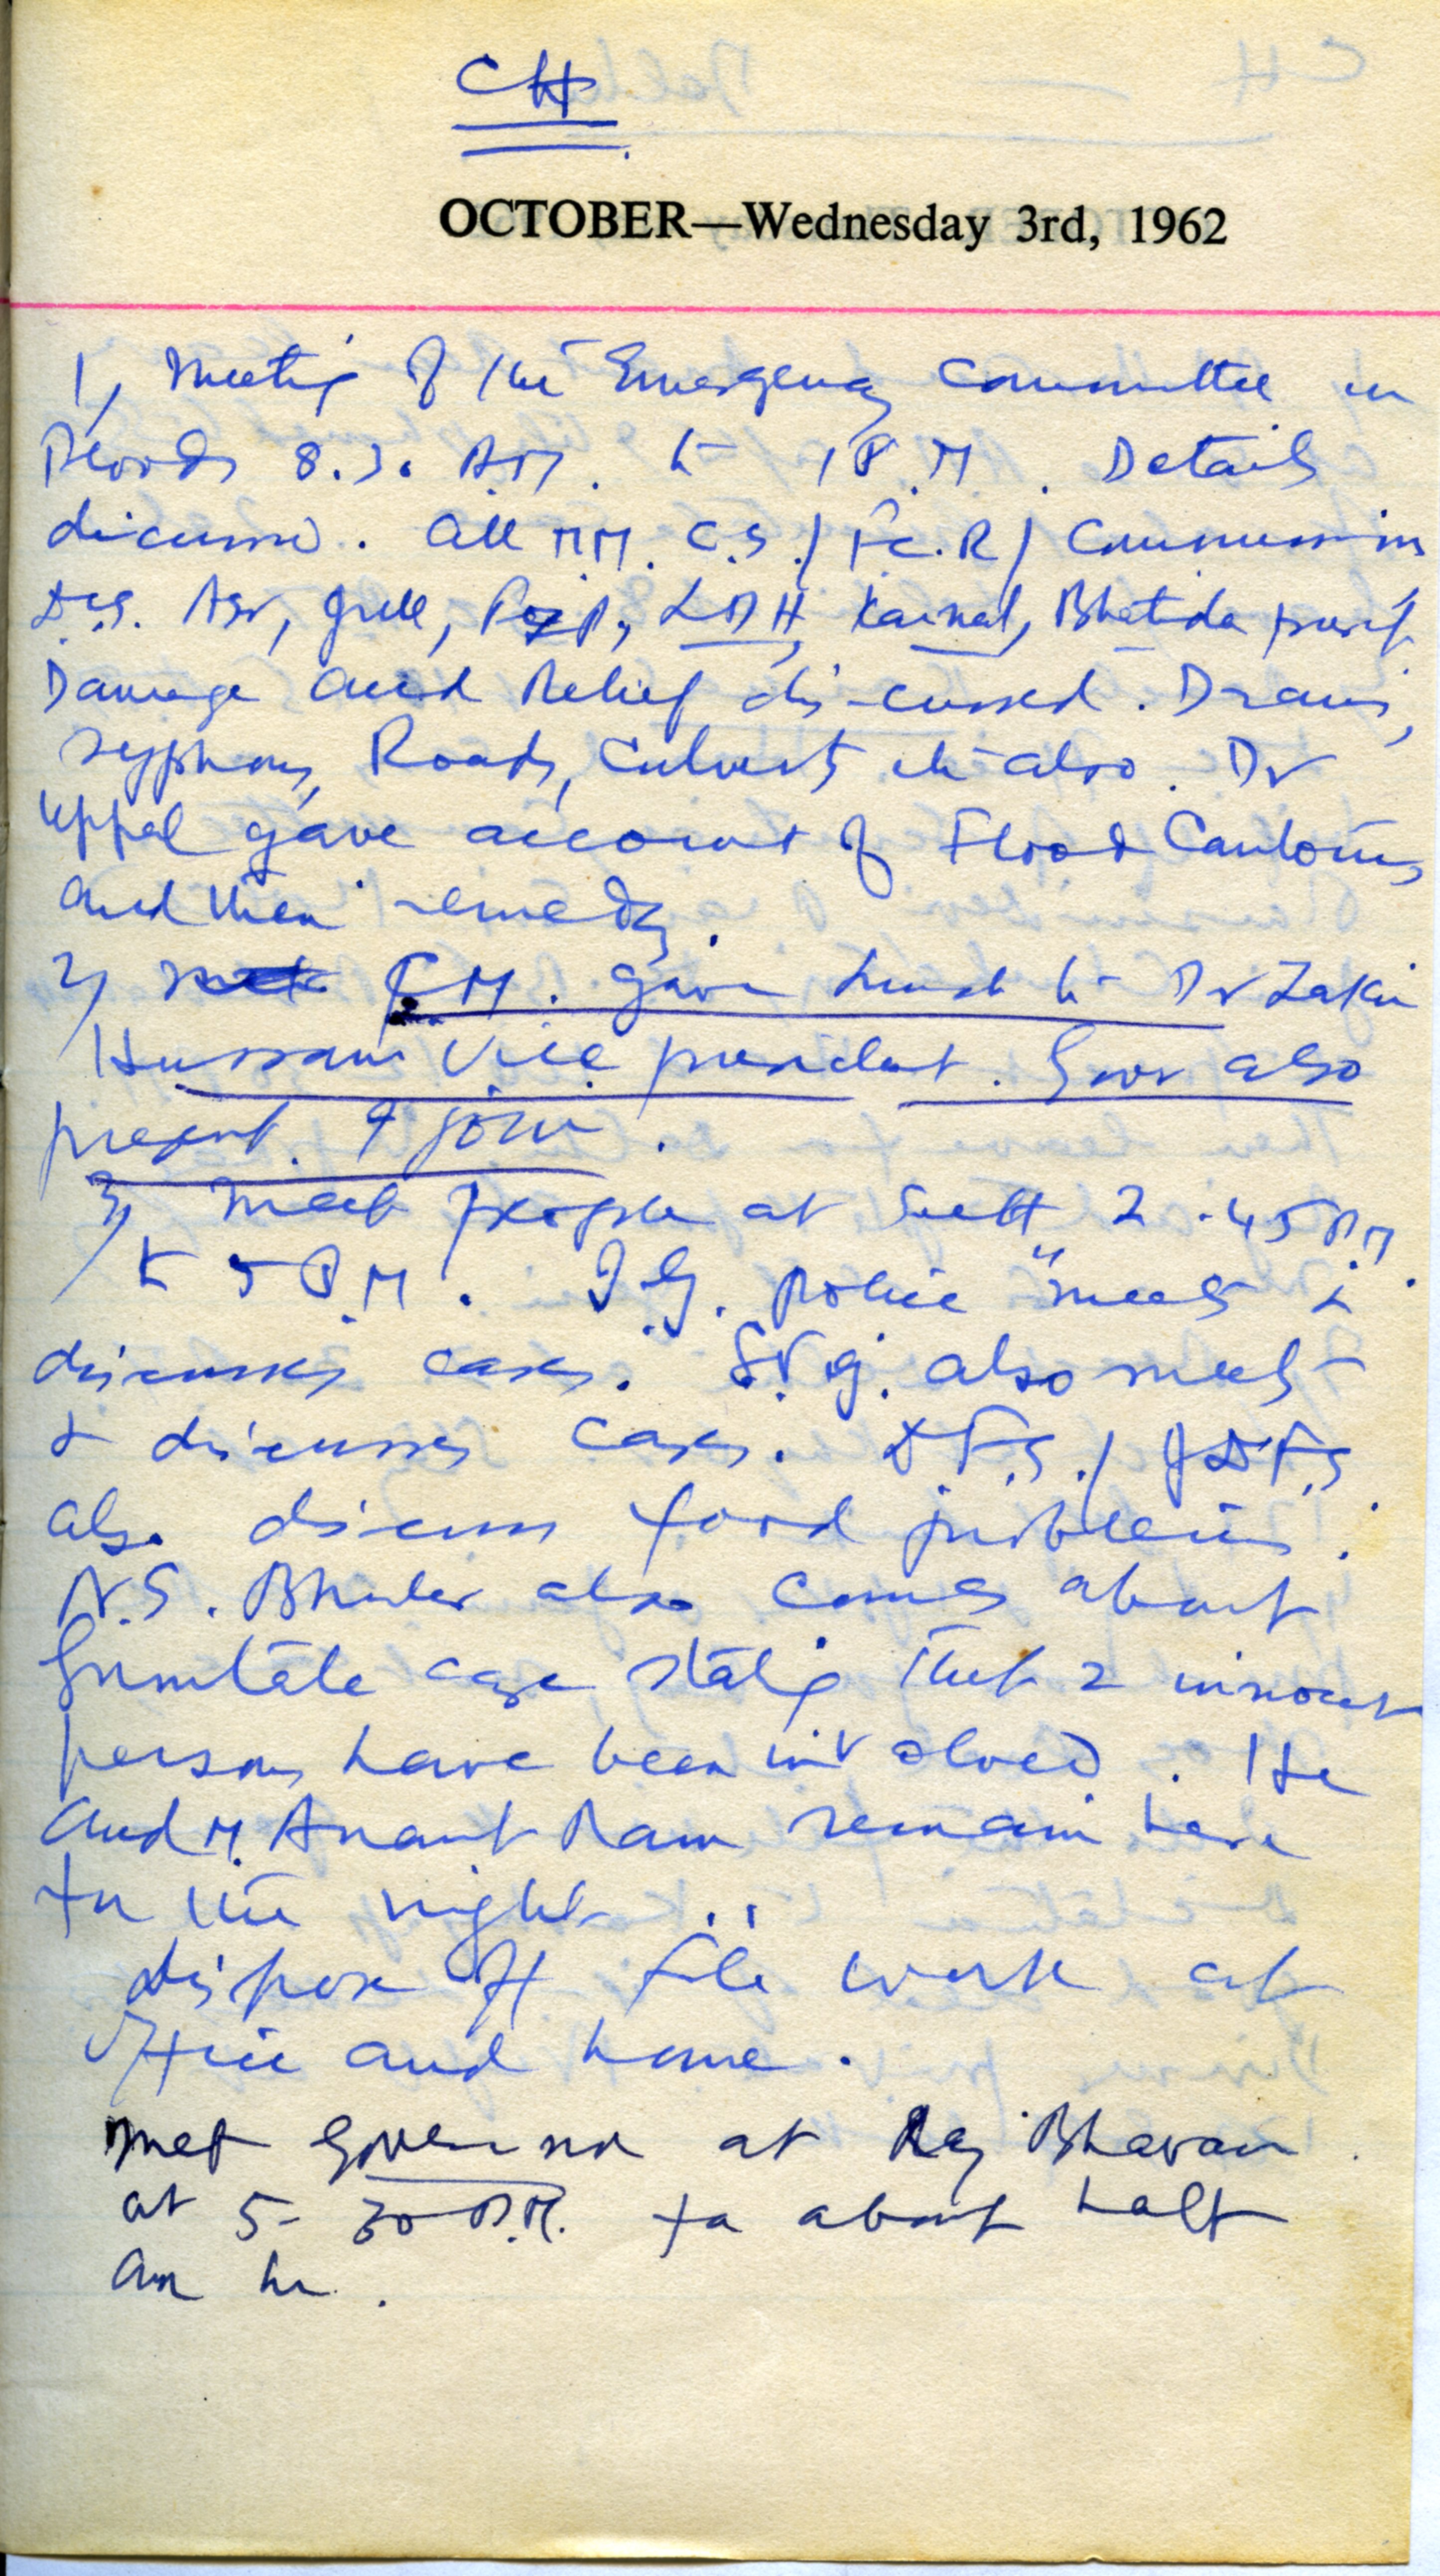 CH
OCTOBER—Wednesday 3rd, 1962
1) Meeting of the Emergency Committee on
Floods 8.30 A.M. to 1 P.M. Details
discussed. All M.M. C.S./F.C.R/ Commissioners
D.Cs. Asr, Jull, LDH, Karnal, Bhatinda present
Damage and Relief discussed. Drains,
Syphons, Roads, Culverts etc also. Dr
Uppal gave account of Flood
and their remedy.
2) C.M. gave lunch to Dr Zakir
Hussain Vice president. Govr also
present. I join.
3) Meet people at Sectt 2.45 P.M.
to 5 P.M. I.G. police meets &
discusses cases. also meets
& discusses cases. D.F.S./J.D.F.S
also discuss food problems.
N.S. Bhuler also comes about
case stating that 2 innocent
persons have been involved. He
and M. Anant Ram remain here
for the night.
dispose off file work at
office and home.
Met Governor at Raj Bhavan
at 5-30 P.M. for about half
an hr.